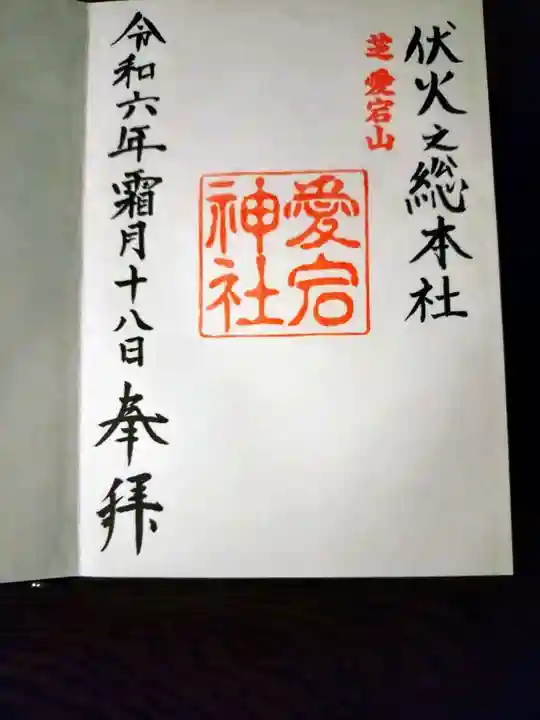 伏火之総本社
芝愛宕山
愛宕
神社
令和六年霜月十八日奉拝